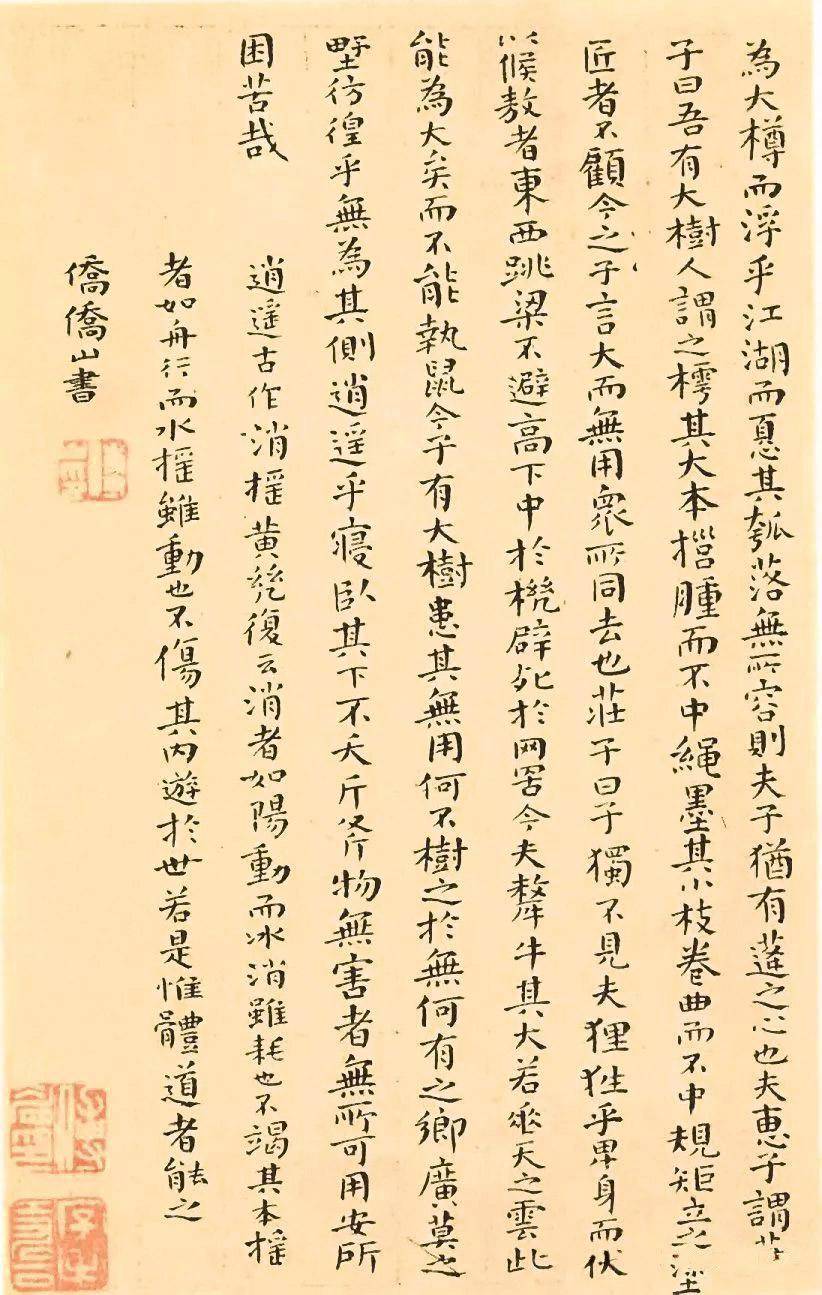 為大樽而浮乎江湖而憂其瓠落無所容則夫子猶有蓬之心也夫惠子謂莊
子曰吾有大樹人謂之樗其大本擁腫而不中繩墨其小枝卷曲而不中規矩立之塗
匠者不顧今之子言大而無用衆所同去也莊子曰子獨不見夫狸狌乎卑身而伏
以候敖者東西跳梁不避高下中於機辟死於网罟今夫斄牛其大若垂天之雲此
能為大矣而不能執鼠今子有大樹患其無用何不樹之於無何有之鄉廣莫之
壄彷徨乎無為其側逍遥乎寢臥其下不夭斤斧物無害者無所可用安所
困苦哉
逍遥古作消摇黄幾復云消者如陽動而冰消雖耗也不竭其本摇
者如舟行而水摇雖動也不傷其内遊於世若是惟體道者能之
僑僑山書